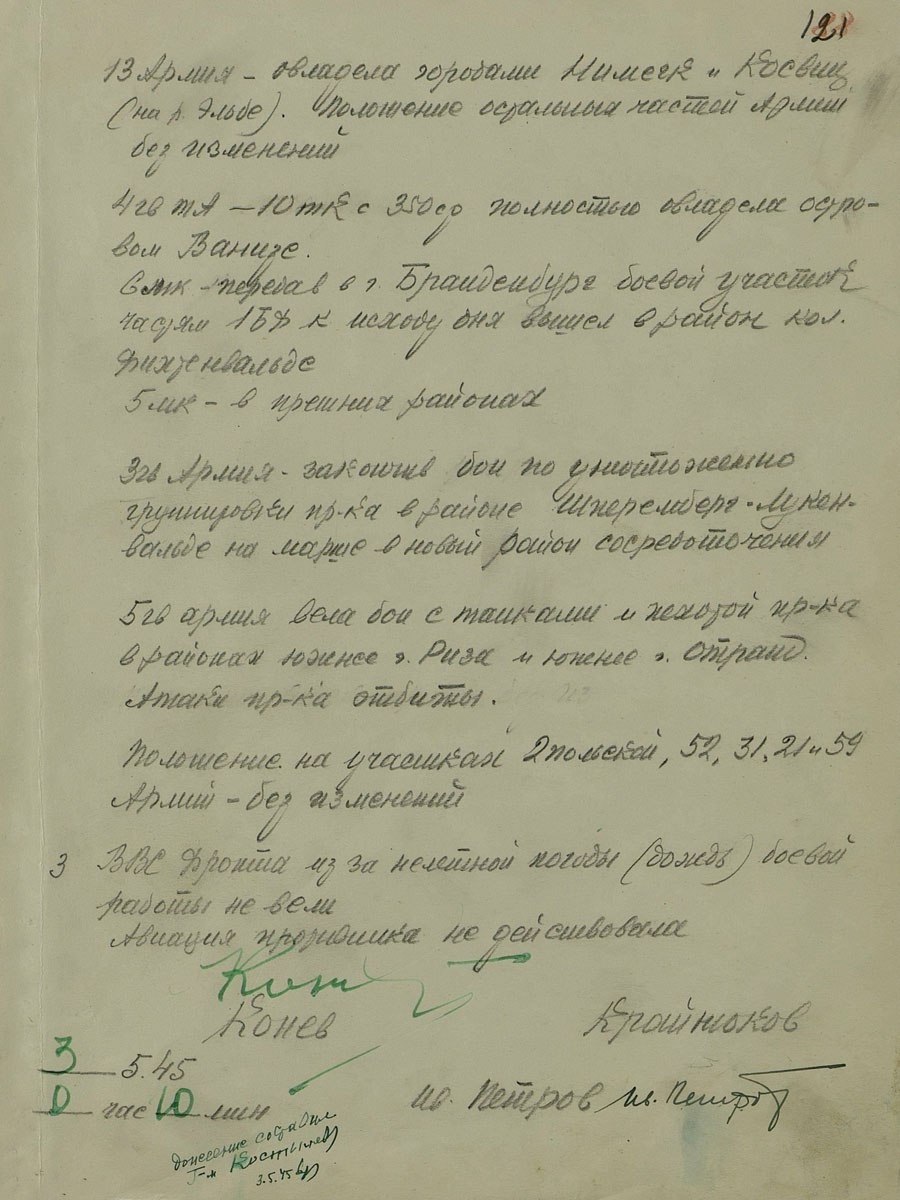 121
13 Армия – овладела городами Нимегк и Косвиг
(на р. Эльбе). Положение остальных частей Армии
без изменений
4 гв тА – 10 тк с 350 сд полностью овладела остро-
вом Ванизе.
6 мк – передав в г. Бранденбург боевой участок
частям 1БФ к исходу дня вышел в район кол.
Фихтенвальде
5 мк – в прежних районах
3 гв Армия – закончив бои по уничтожению
группировки пр-ка в районе Шперемберг - Лукен-
вальде на марше в новый район сосредоточения
5 гв армия вела бои с танками и пехотой пр-ка
в районах южнее г. Риза и южнее г. Отранд.
Атаки пр-ка отбиты.
Положение на участках 2 польской, 52, 31, 21 и 59
Армий – без изменений
3 ВВС Фронта из за нелетной погоды (дождь) боевой
работы не вели
Авиация противника не действовала
Конев Крайнюков
3 5.45
0 час 10 мин Ив. Петров Ив. Петров
донесение составил
Г-м Костылев
3.5.45